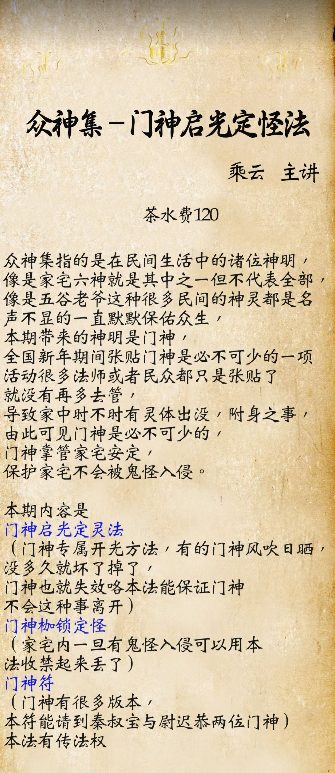 众神集－门神启光定怪法
乘云 主讲
茶水费120
众神集指的是在民间生活中的诸位神明，
像是家宅六神就是其中之一但不代表全部，
像是五谷老爷这种很多民间的神灵都是名
声不显的一直默默保佑众生，
本期带来的神明是门神，
全国新年期间张贴门神是必不可少的一项
活动很多法师或者民众都只是张贴了
就没有再多去管，
导致家中时不时有灵体出没，附身之事，
由此可见门神是必不可少的，
门神掌管家宅安定，
保护家宅不会被鬼怪入侵。
本期内容是
门神启光定灵法
（门神专属开光方法，有的门神风吹日晒，
没多久就坏了掉了，
门神也就失效咯本法能保证门神
不会这种事离开）
门神枷锁定怪
（家宅内一旦有鬼怪入侵可以用本
法收禁起来丢了）
门神符
（门神有很多版本，
本符能请到秦叔宝与尉迟恭两位门神）
本法有传法权